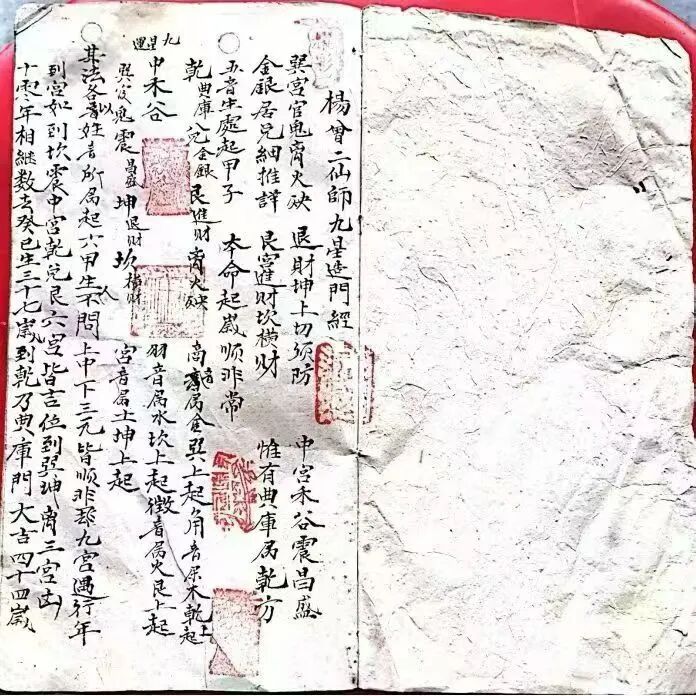 楊曾二仙師九星造門經
巽宮官鬼离火殃 退財坤上切須防 中宮禾谷震昌盛
金銀居兑細推詳 艮宮進財坎橫財 惟有典庫居乾方
五音生處起甲子 本命起歲順非常
乾典庫 兑金銀 艮進財 离火殃 商音屬金巽上起角音屬木乾上起
九星運 中禾谷 羽音屬水坎上起徵音屬火艮上起
巽官鬼 震昌盛 坤退財 坎橫財 宮音屬土坤上起
其法各以姓音所屬起六甲生人不問上中下三元皆順非却九宮遇行年
到宮如到坎震中宮乾兑艮六宮皆吉位到巽坤离三宮凶
十零年相継数去癸巳生三十七歲到乾乃典庫門大吉四十四歲